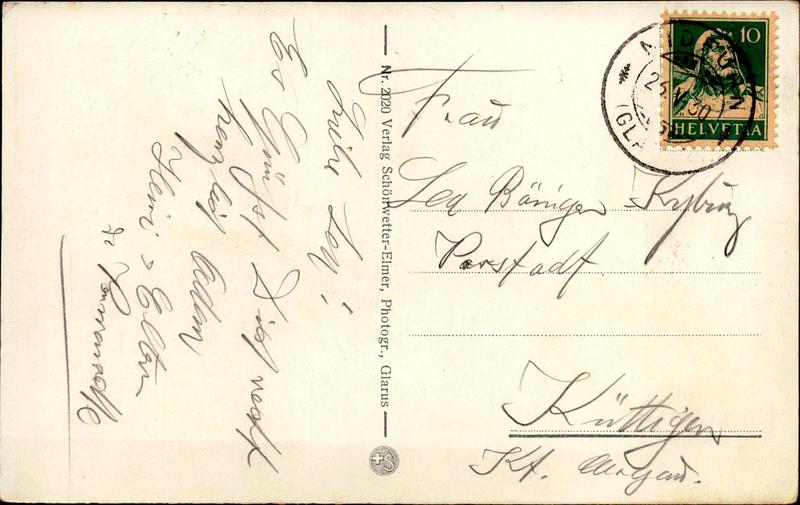 Liebe Ley!
Es Grüsst Dich recht
herzlich Adam
Heiri & Eltern
Nr. 2020 Verlag Schönwetter-Elmer, Photogr., Glarus
Frau
Lea Bänigen Kyburz
Vorstadt.
Küttigen
Kt. Aargau.
10
HELVETIA
25.V.30
(GLA